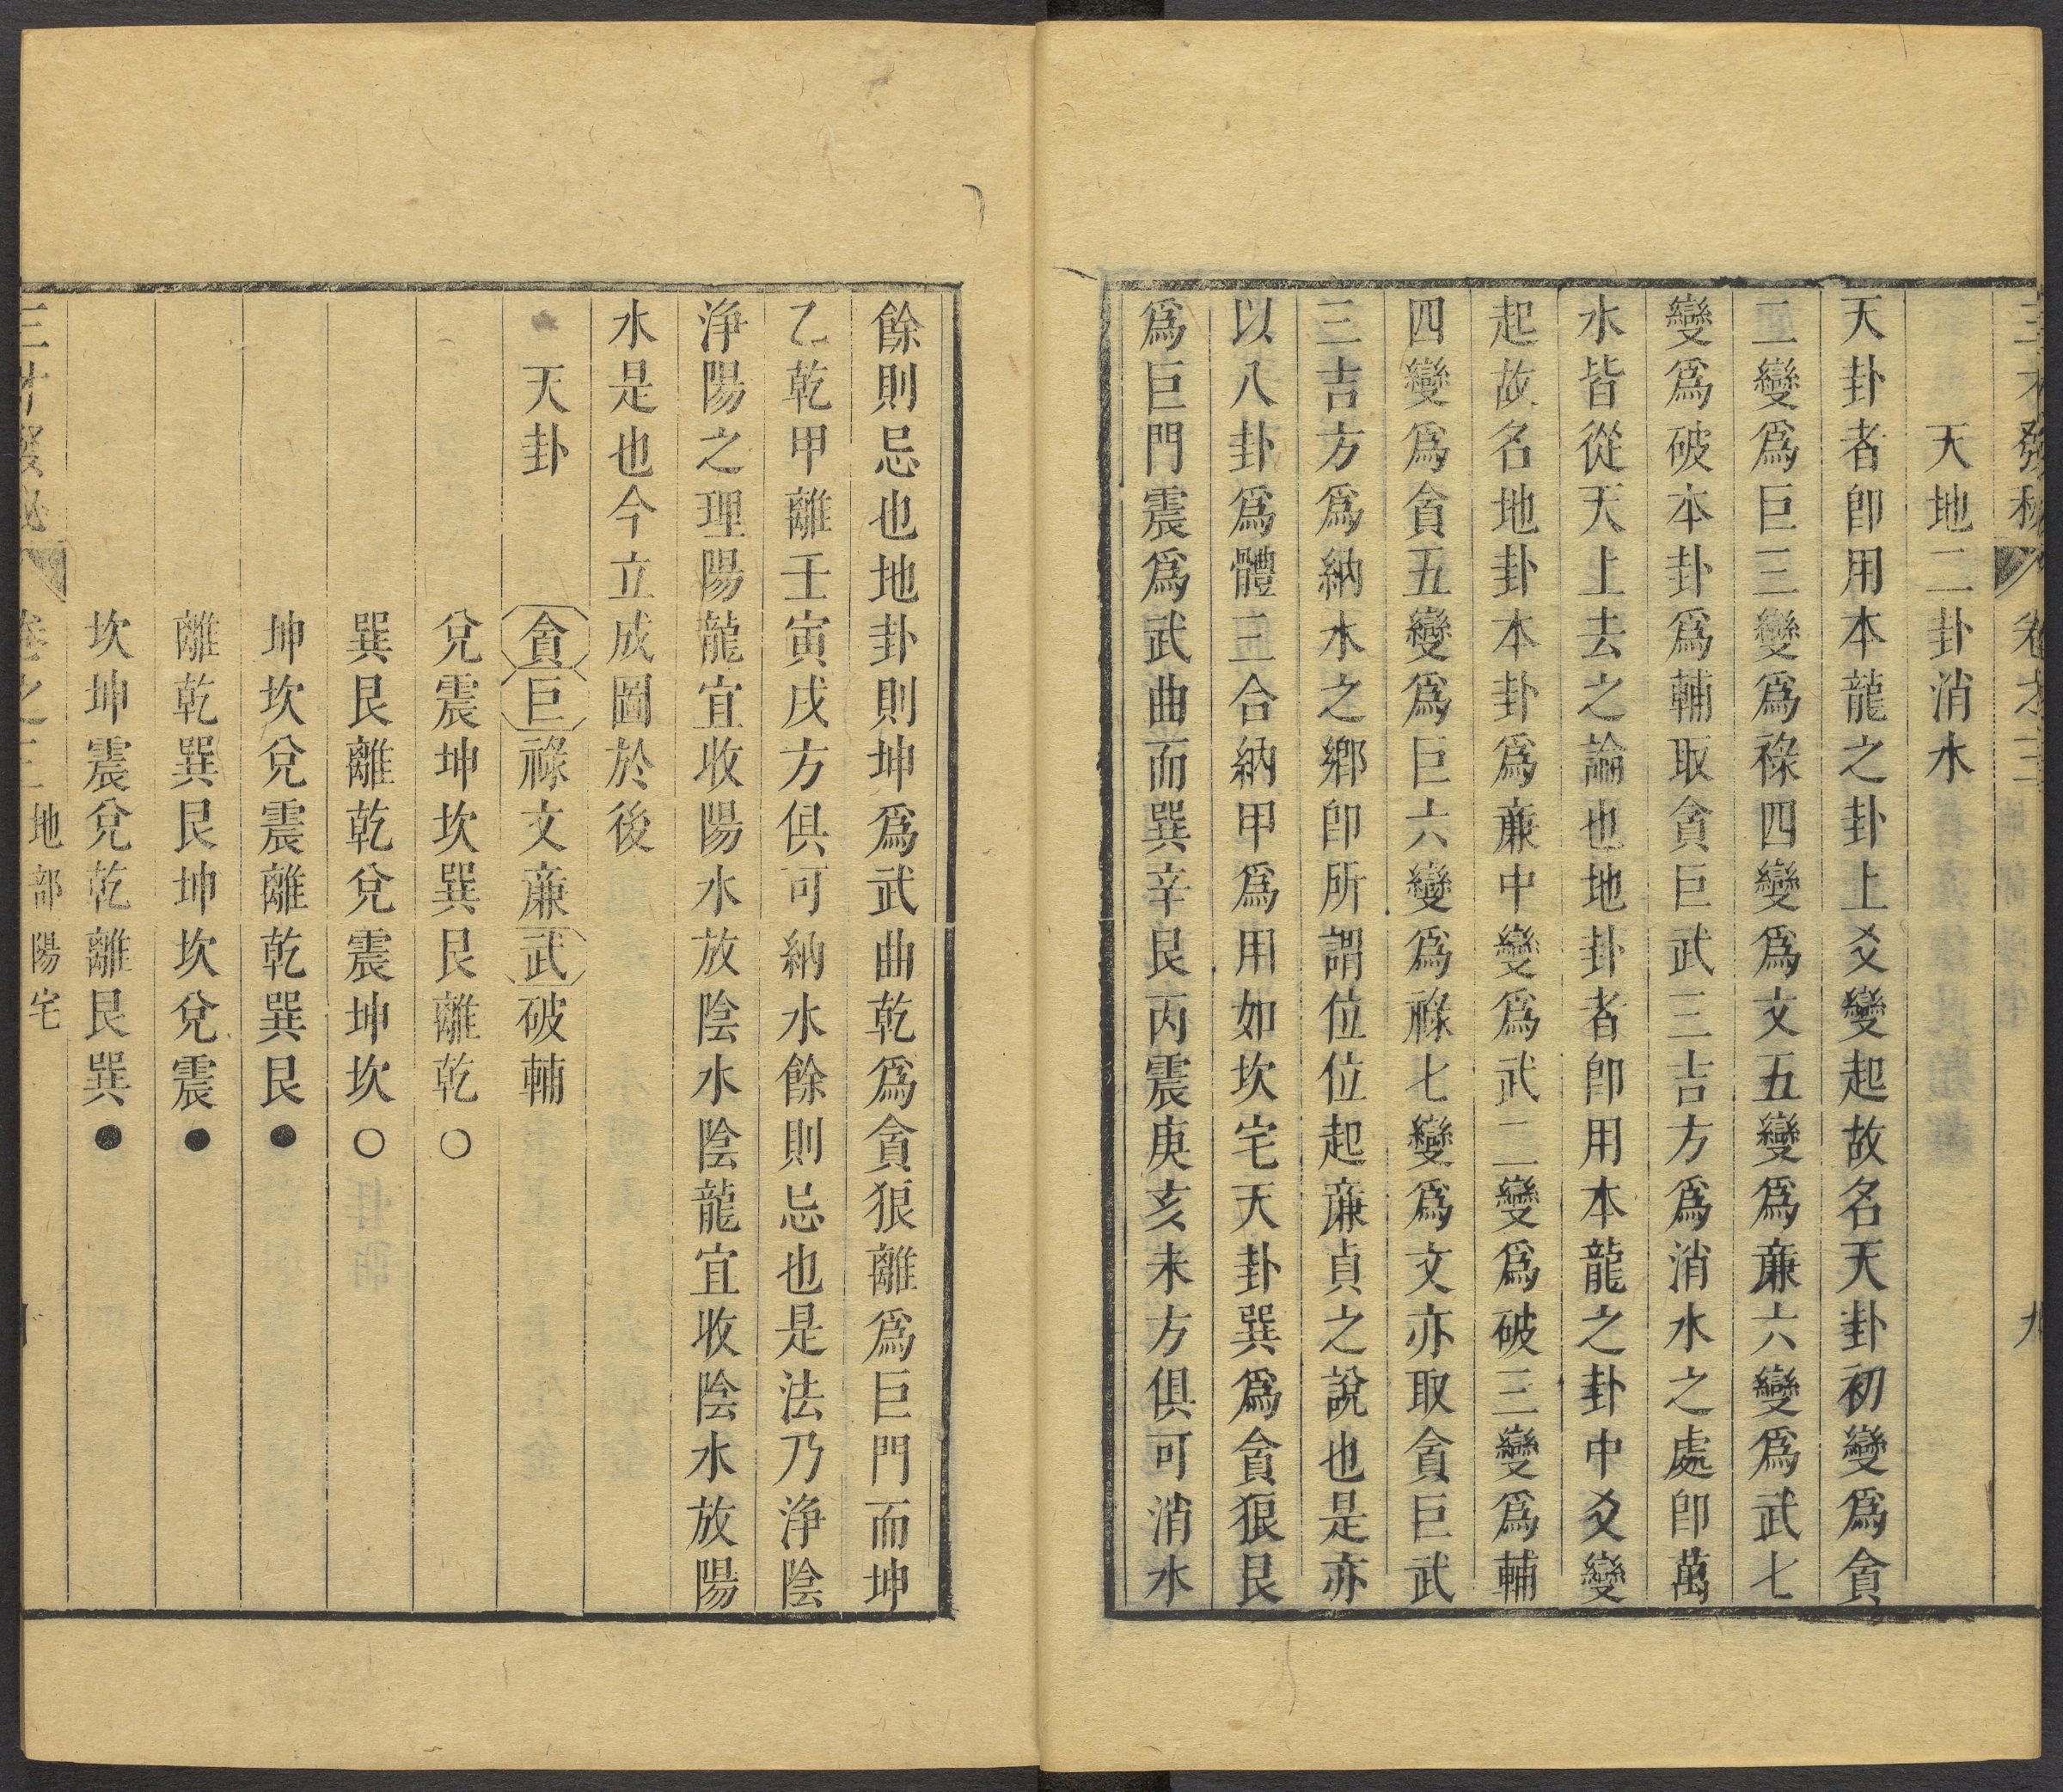 三才發秘 卷之三 九
天地二卦消水
天卦者卽用本龍之卦上爻變起故名天卦初變爲貪
二變爲巨三變爲祿四變爲文五變爲廉六變爲武七
變爲破本卦爲輔取貪巨武三吉方爲消水之處卽萬
水皆從天上去之論也地卦者卽用本龍之卦中爻變
起故名地卦本卦爲廉中變爲武二變爲破三變爲輔
四變爲貪五變爲巨六變爲祿七變爲文亦取貪巨武
三吉方爲納水之鄉卽所謂位位起廉貞之說也是亦
以八卦爲體三合納甲爲用如坎宅天卦巽爲貪狼艮
爲巨門震爲武曲而巽辛艮丙震庚亥未方俱可消水
餘則忌也地卦則坤爲武曲乾爲貪狼離爲巨門而坤
乙乾甲離壬寅戌方俱可納水餘則忌也是法乃淨陰
淨陽之理陽龍宜收陽水放陰水陰龍宜收陰水放陽
水是也今立成圖於後
天卦 貪巨祿文廉武破輔
兌震坤坎巽艮離乾○
巽艮離乾兌震坤坎○
坤坎兌震離乾巽艮●
離乾巽艮坤坎兌震●
坎坤震兌乾離艮巽●
三才發秘 卷之三 地部陽宅